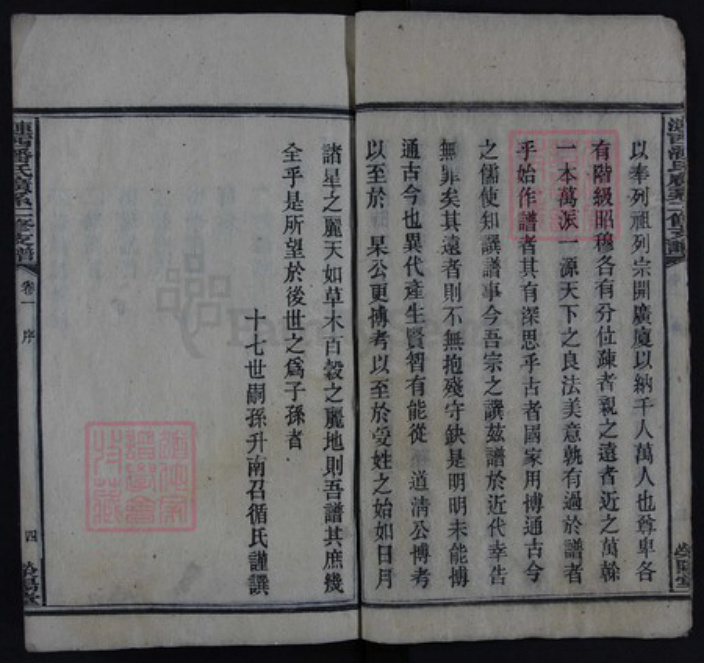 以奉列祖列宗開廣廈以納千人萬人也尊卑各
有階級昭穆各有分位疎者親之遠者近之萬榦
一本萬派一源天下之良法美意孰有過於譜者
乎始作譜者其有深思乎古者國家用博通古今
之儒使知譔譜事今吾宗之譔玆譜於近代幸告
無罪矣其遠者則不無抱殘守缺是明明未能博
通古今也異代產生賢智有能從 道清公博考
以至於 杲公更博考以至於受姓之始如日月
諸星之麗天如草木百穀之麗地則吾譜其庶幾
全乎是所望於後世之爲子孫者
十七世嗣孫升南召循氏謹譔
潘氏 二修支譜
卷一 序
四